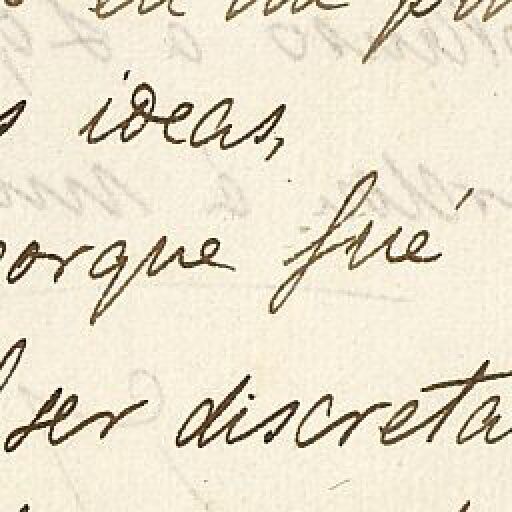 s ideas,
porque fué
ser discreta